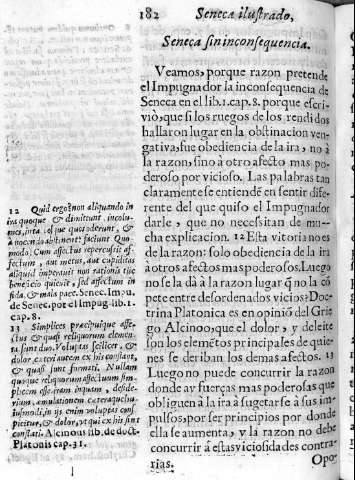 182 Seneca ilustrado,
Seneca sin inconsequencia.
Veamos, porque razon pretende
el Impugnador la inconsequencia de
Seneca en el lib. 1. cap. 8. porque escri-
vió, que si los ruegos de los rendidos
hallaron lugar en la obstinacion ven-
gativa, fue obediencia de la ira, no à
la razon, sino à otro afecto mas po-
deroso por vicioso. Las palabras tan
claramente se entiendē en sentir dife-
rente del que quiso el Impugnador
darle, que no necessitan de mu-
cha explicacion. 12 Esta vitoria no es
de la razon: solo obediencia de la ira
à otros afectos mas poderosos. Luego
no se la dà à la razon lugar q̄ no la cō
pete entre desordenados vicios? Doc-
trina Platonica es en opiniō del Grie
go Alcinoo, que el dolor, y deleite
son los elemētos principales de quie-
nes se deriban los demas afectos. 13
Luego no puede concurrir la razon
donde ay fuerças mas poderosas que
obliguen à la ira à sugetarse à sus im-
pulsos, por ser principios por donde
ella se aumenta, y la razon no debe
concurrir à estas viciosidades contra-
rias.
Opo-
12 Quid ergo? non aliquando in
ira quoque & dimittunt incolu-
mes, intactosque quos oderunt, &
à nocendo abstinent: faciunt Quo-
modo; Cum affectus repercussit af-
fectum, aut metus, aut cupiditas
aliquid imperavit non rationis tūc
beneficio quievit, sed affectum in
fida, & mala pace. Senec. Impu.
de Senec. por el Impug. lib. 1.
cap. 8.
13 Simplices præcipuique affe-
ctus & quasi reliquorum elemen-
ta sunt duo. Voluptas scilicet, &
dolor, cæteri autem ex his constant,
& quasi sunt formati. Nullam
quoque reliquorum affectuum sim-
plicem esse
rium, emulationem cæteraque hu-
iusmodi, in ijs enim voluptas cons-
picitur, & dolor, vt qui ex his sint
constati. Alcinous lib. de doct.
Platonis cap. 31.